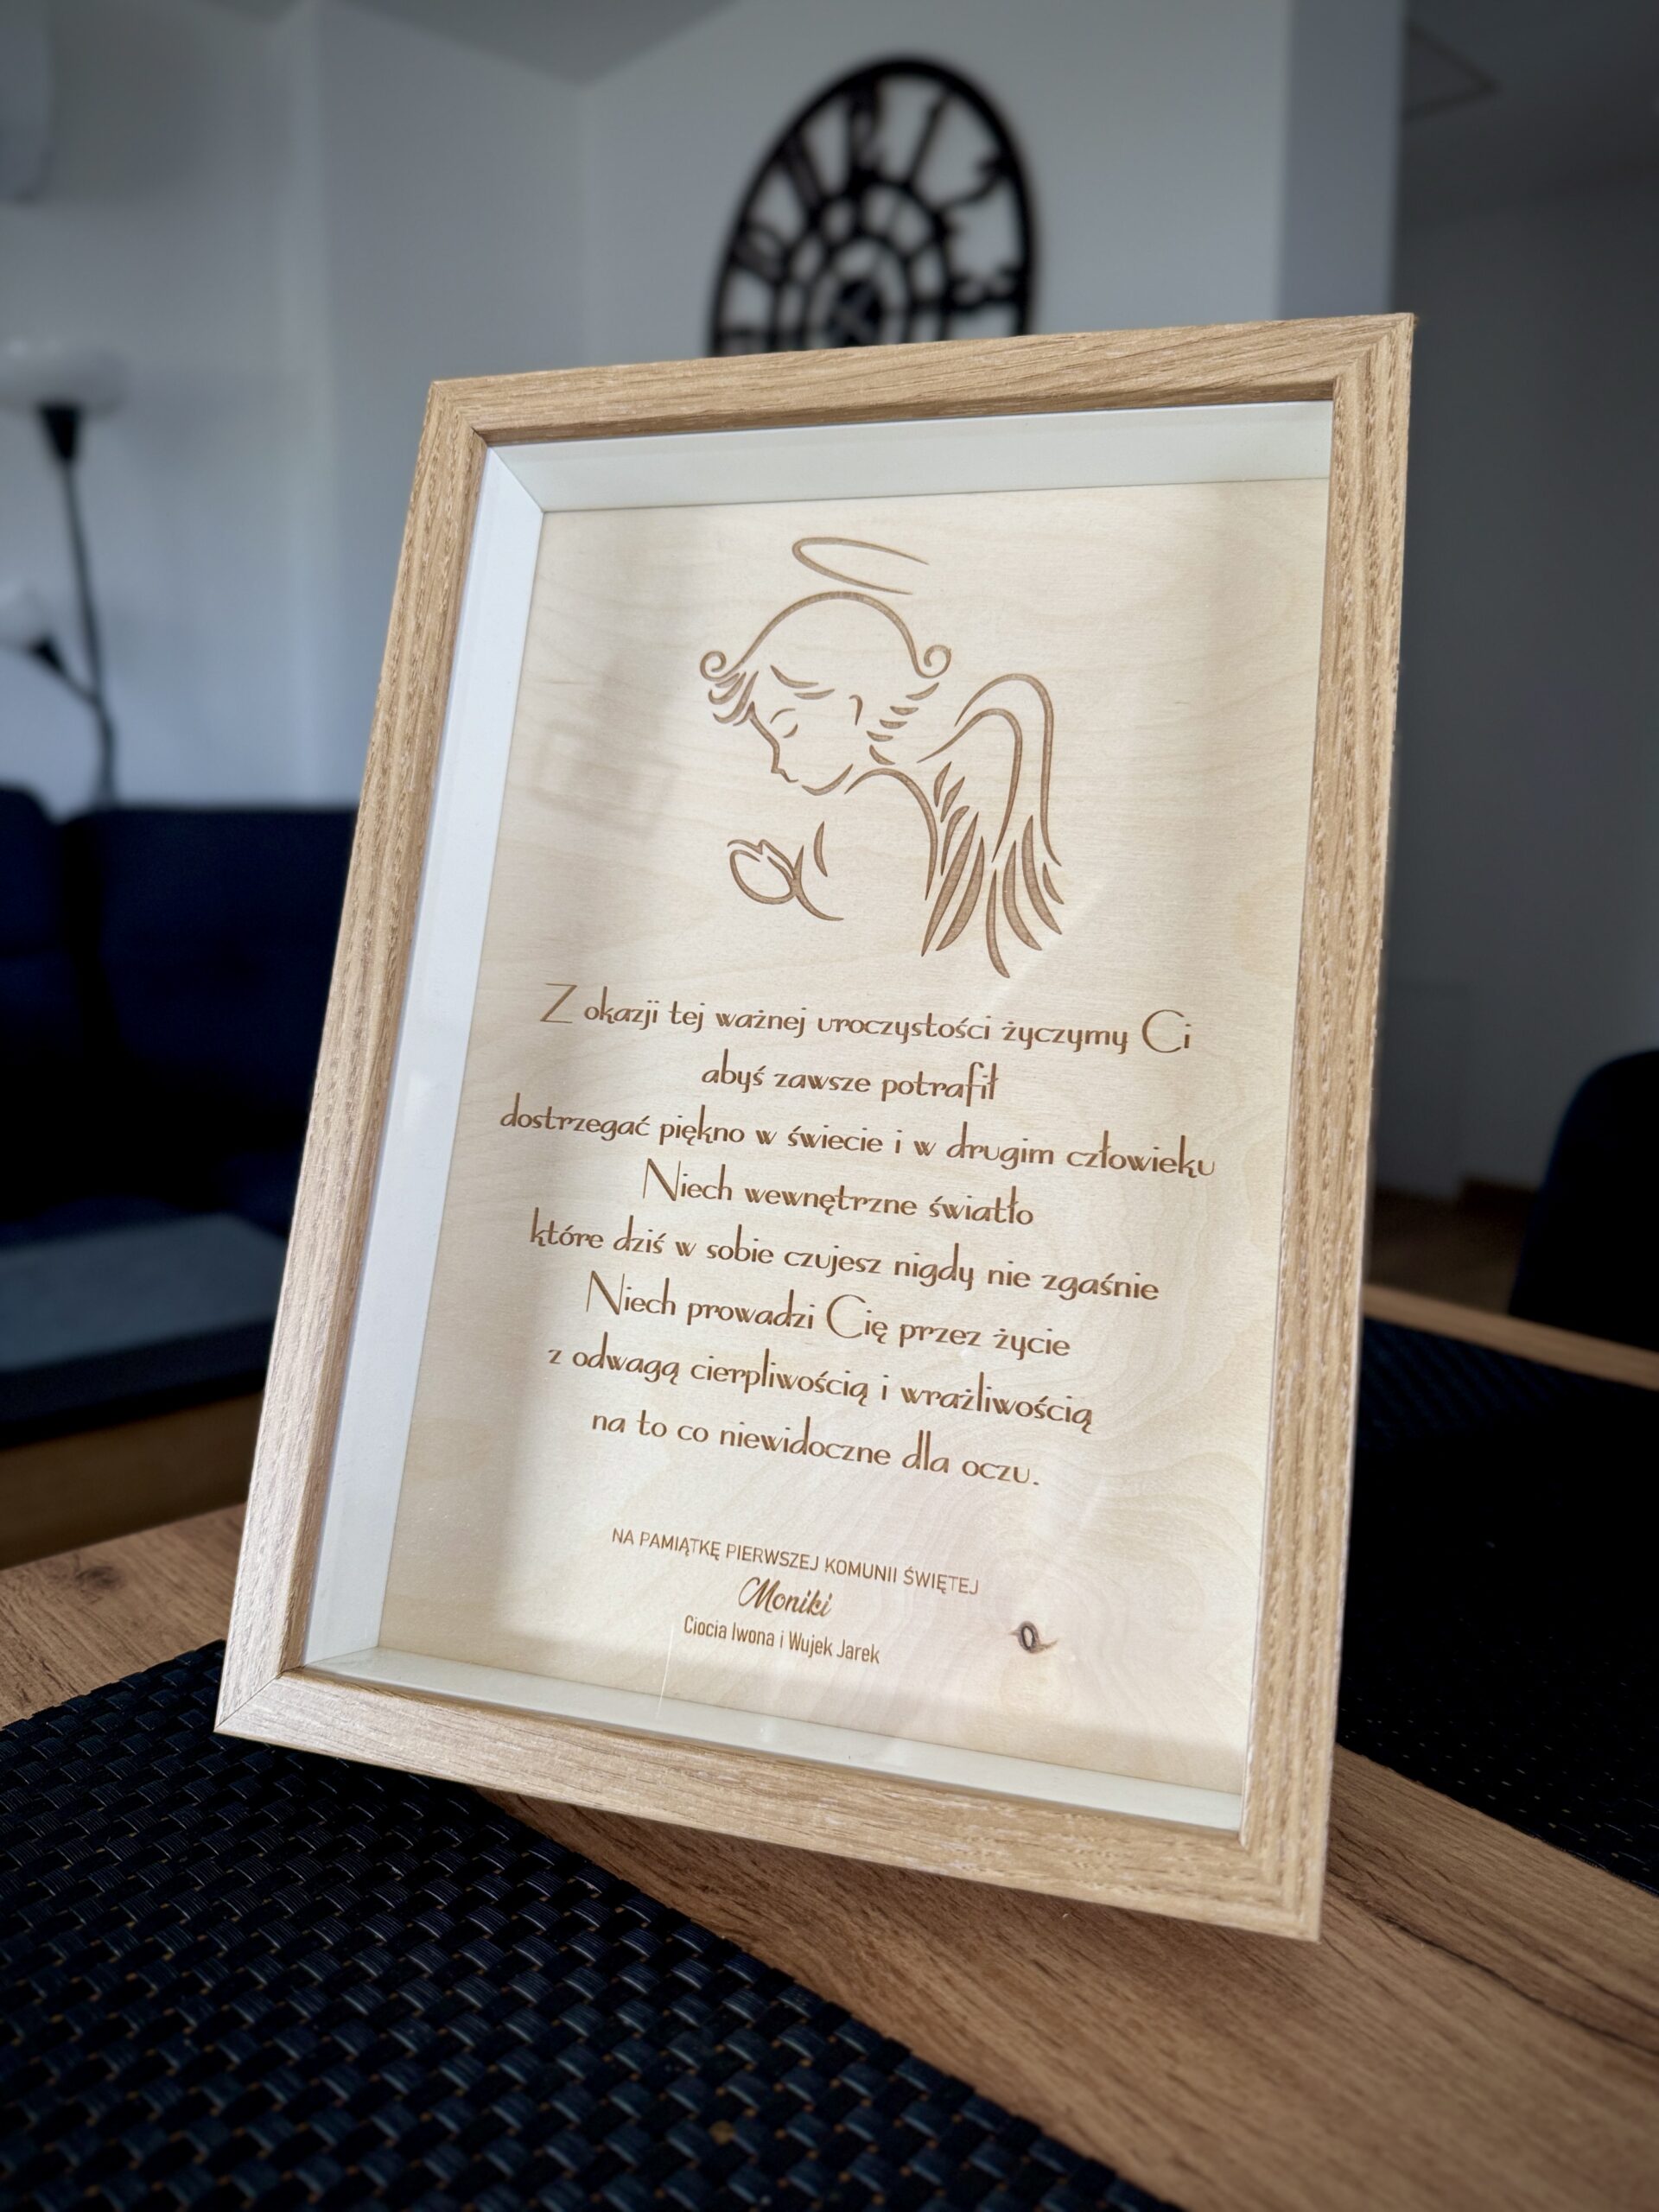 Z okazji tej ważnej uroczystości życzymy Ci
abyś zawsze potrafił
dostrzegać piękno w świecie i w drugim człowieku
Niech wewnętrzne światło
które dziś w sobie czujesz nigdy nie zgaśnie
Niech prowadzi Cię przez życie
z odwagą cierpliwością i wrażliwością
na to co niewidoczne dla oczu.
NA PAMIĄTKĘ PIERWSZEJ KOMUNII ŚWIĘTEJ
Moniki
Ciocia Iwona i Wujek Jarek